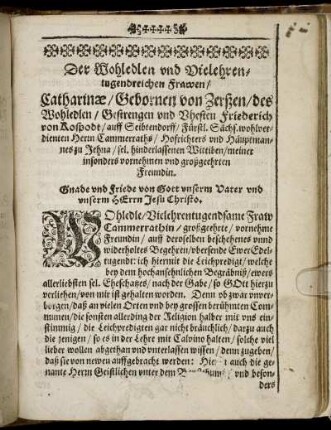 Der Wohledlen vnd Vielehren-
tugendreichen Frawen/
Catharinæ/ Gebornen von Zerßen/ des
Wohledlen/ Gestrengen vnd Vhesten Friederich
von Koßpodt/ auff Seibtendorff/ Fürstl. Sächs. wohlver-
dienten Herrn Cammerraths/ Hofrichters vnd Häuptman-
nes zu Jehna/ sel. hinderlassenen Wittiben/ meiner
insonders vornehmen vnd großgeehrten
Freundin.
Gnade vnd Friede von Gott vnserm Vater vnd
vnserm HErrn Jesu Christo.
WOhledle/ Vielehrentugendsame Fraw
Cammerräthin/ großgeehrte/ vornehme
Freundin/ auff deroselben beschehenes vnnd
widerholtes Begehren/ vbersende Ewer Edel-
tugend: ich hiermit die Leichpredigt/ welche
bey dem hochansehnlichen Begräbniß/ ewers
allerliebsten sel. Eheschatzes/ nach der Gabe/ so GOtt hierzu
verliehen/ von mir ist gehalten worden. Denn ob zwar vnver-
borgen/ daß an vielen Orten vnd bey grossen berühmten Com-
munen/ die sonsten allerding der Religion halber mit vns ein-
stimmig/ die Leichpredigten gar nicht bräuchlich/ darzu auch
die jenigen/ so es in der Lehre mit Calvino halten/ solche viel
lieber wollen abgethan vnd vnterlassen wissen/ denn zugeben/
daß sie von newen auffgebracht werden: auch die ge-
nante Herrn Geistlichen vnter dem vnd beson-
ders